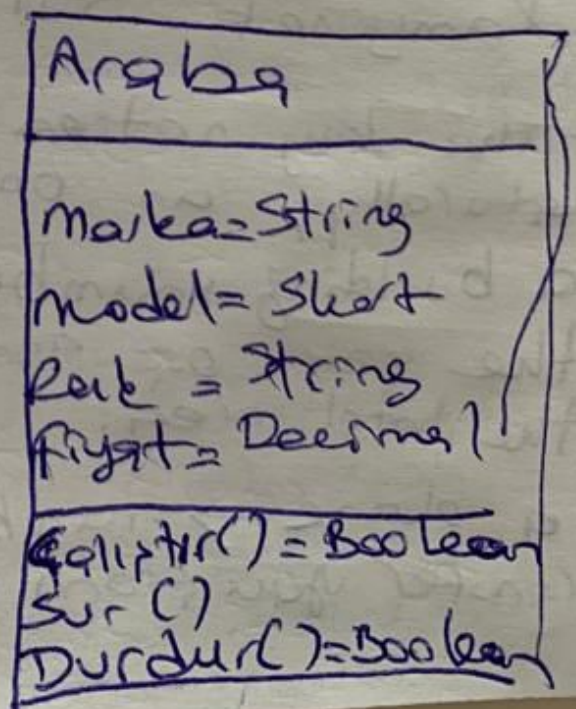 Araba
Marka=String
Model= Short
Renk = String
fiyat= Decimal
Çalıştır()=Boolean
Sur ()
Durdur()=Boolean